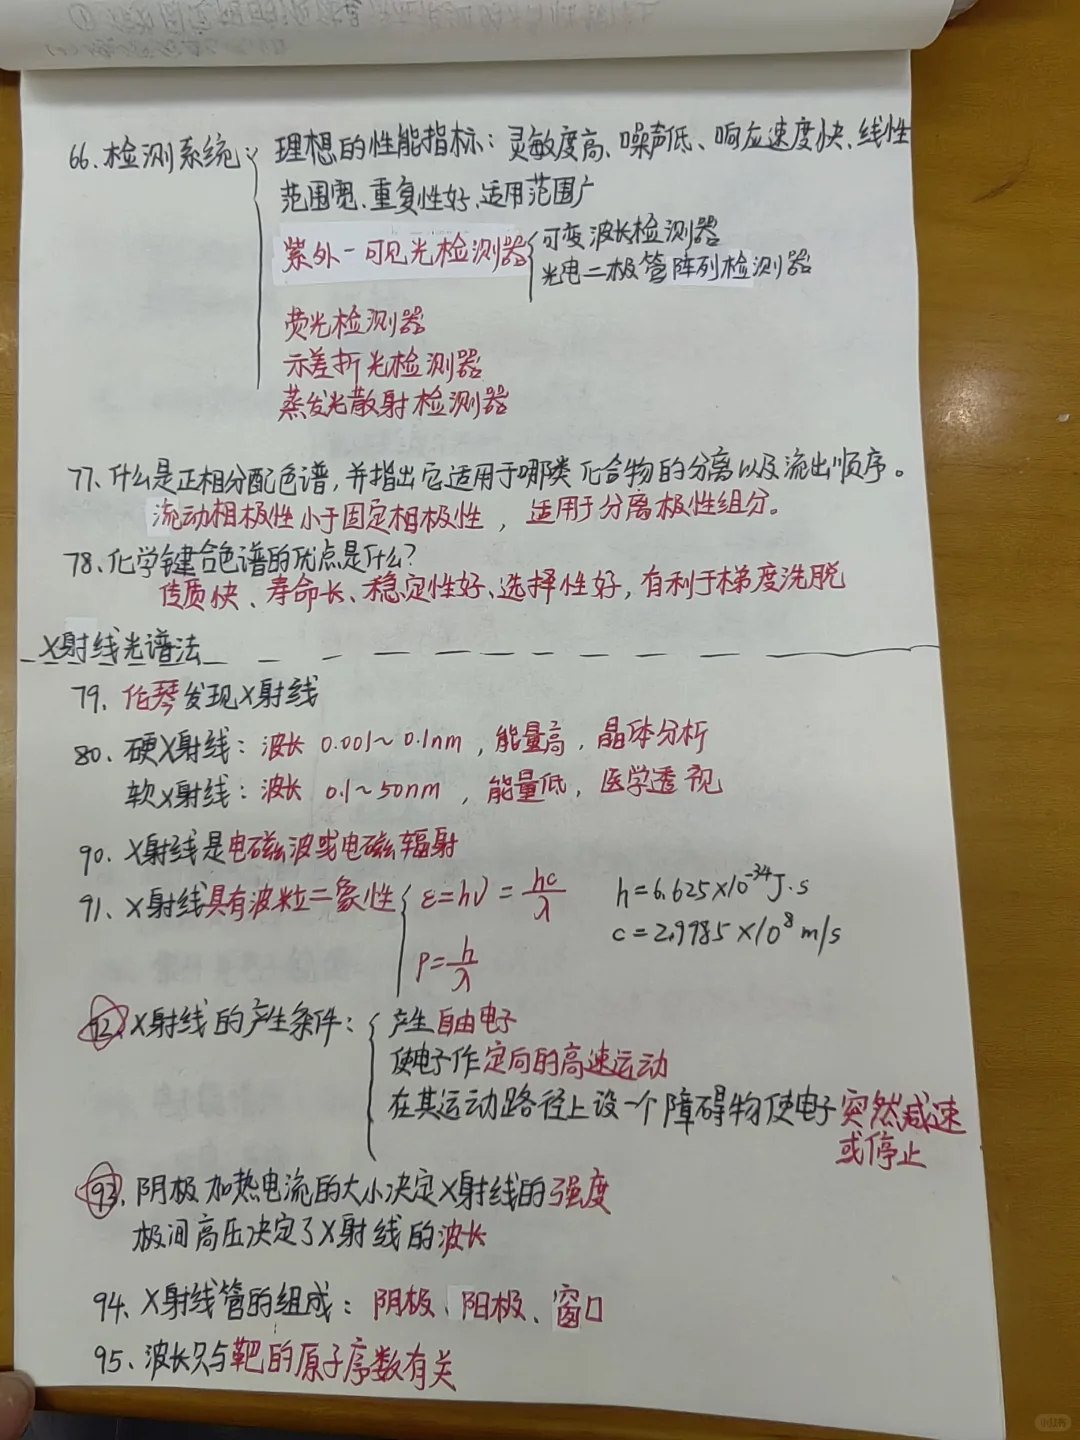 66、检测系统 理想的性能指标：灵敏度高、噪声低、响应速度快、线性
范围宽、重复性好、适用范围广
紫外-可见光检测器 可变波长检测器
光电二极管阵列检测器
荧光检测器
示差折光检测器
蒸发光散射检测器
77、什么是正相分配色谱，并指出它适用于哪类化合物的分离以及流出顺序。
流动相极性小于固定相极性，适用于分离极性组分。
78、化学键合色谱的优点是什么？
传质快、寿命长、稳定性好、选择性好，有利于梯度洗脱
X射线光谱法
79、伦琴发现X射线
80、硬X射线：波长 0.001~0.1nm，能量高，晶体分析
软X射线：波长 0.1~50nm，能量低，医学透视
90、X射线是电磁波或电磁辐射
91、X射线具有波粒二象性 ε=hν=hc/λ h=6.625×10⁻³⁴J·s
c=2.9985×10⁸m/s
P=h/λ
92、X射线的产生条件： 产生自由电子
使电子作定向的高速运动
在其运动路径上设一个障碍物使电子突然减速
或停止
93、阴极加热电流的大小决定X射线的强度
极间高压决定了X射线的波长
94、X射线管的组成：阴极、阳极、窗口
95、波长只与靶的原子序数有关
小红书